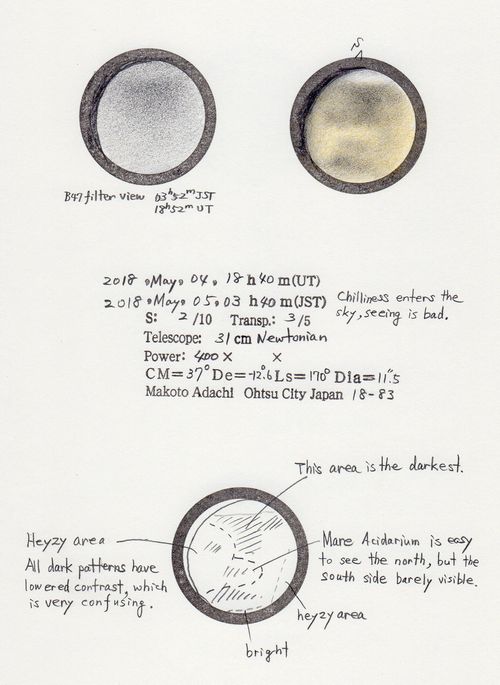 S
B47 filter view 03h52m JST
18h52m UT
2018, May, 04, 18 h 40 m(UT)
2018, May, 05, 03 h 40 m(JST)
Chilliness enters the
sky, seeing is bad.
S: 2 /10 Transp.: 3 /5
Telescope: 31 cm Newtonian
Power: 400 × ×
CM=37° De=-12.°6 Ls=170° Dia=11."5
Makoto Adachi Ohtsu City Japan 18-83
This area is the darkest.
Heyzy area
All dark patterns have
lowered contrast, which
is very confusing.
Mare Acidarium is easy
to see the north, but the
south side barely visible.
heyzy area
bright